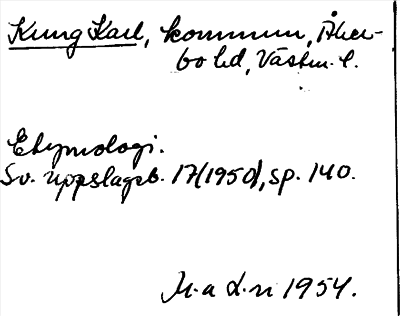 Kung Karl, kommun, Åker-
bo hd, Västm. l.
Etymologi.
Sv. uppslagsb. 17(1950), sp. 140.
M.a d.n 1954.